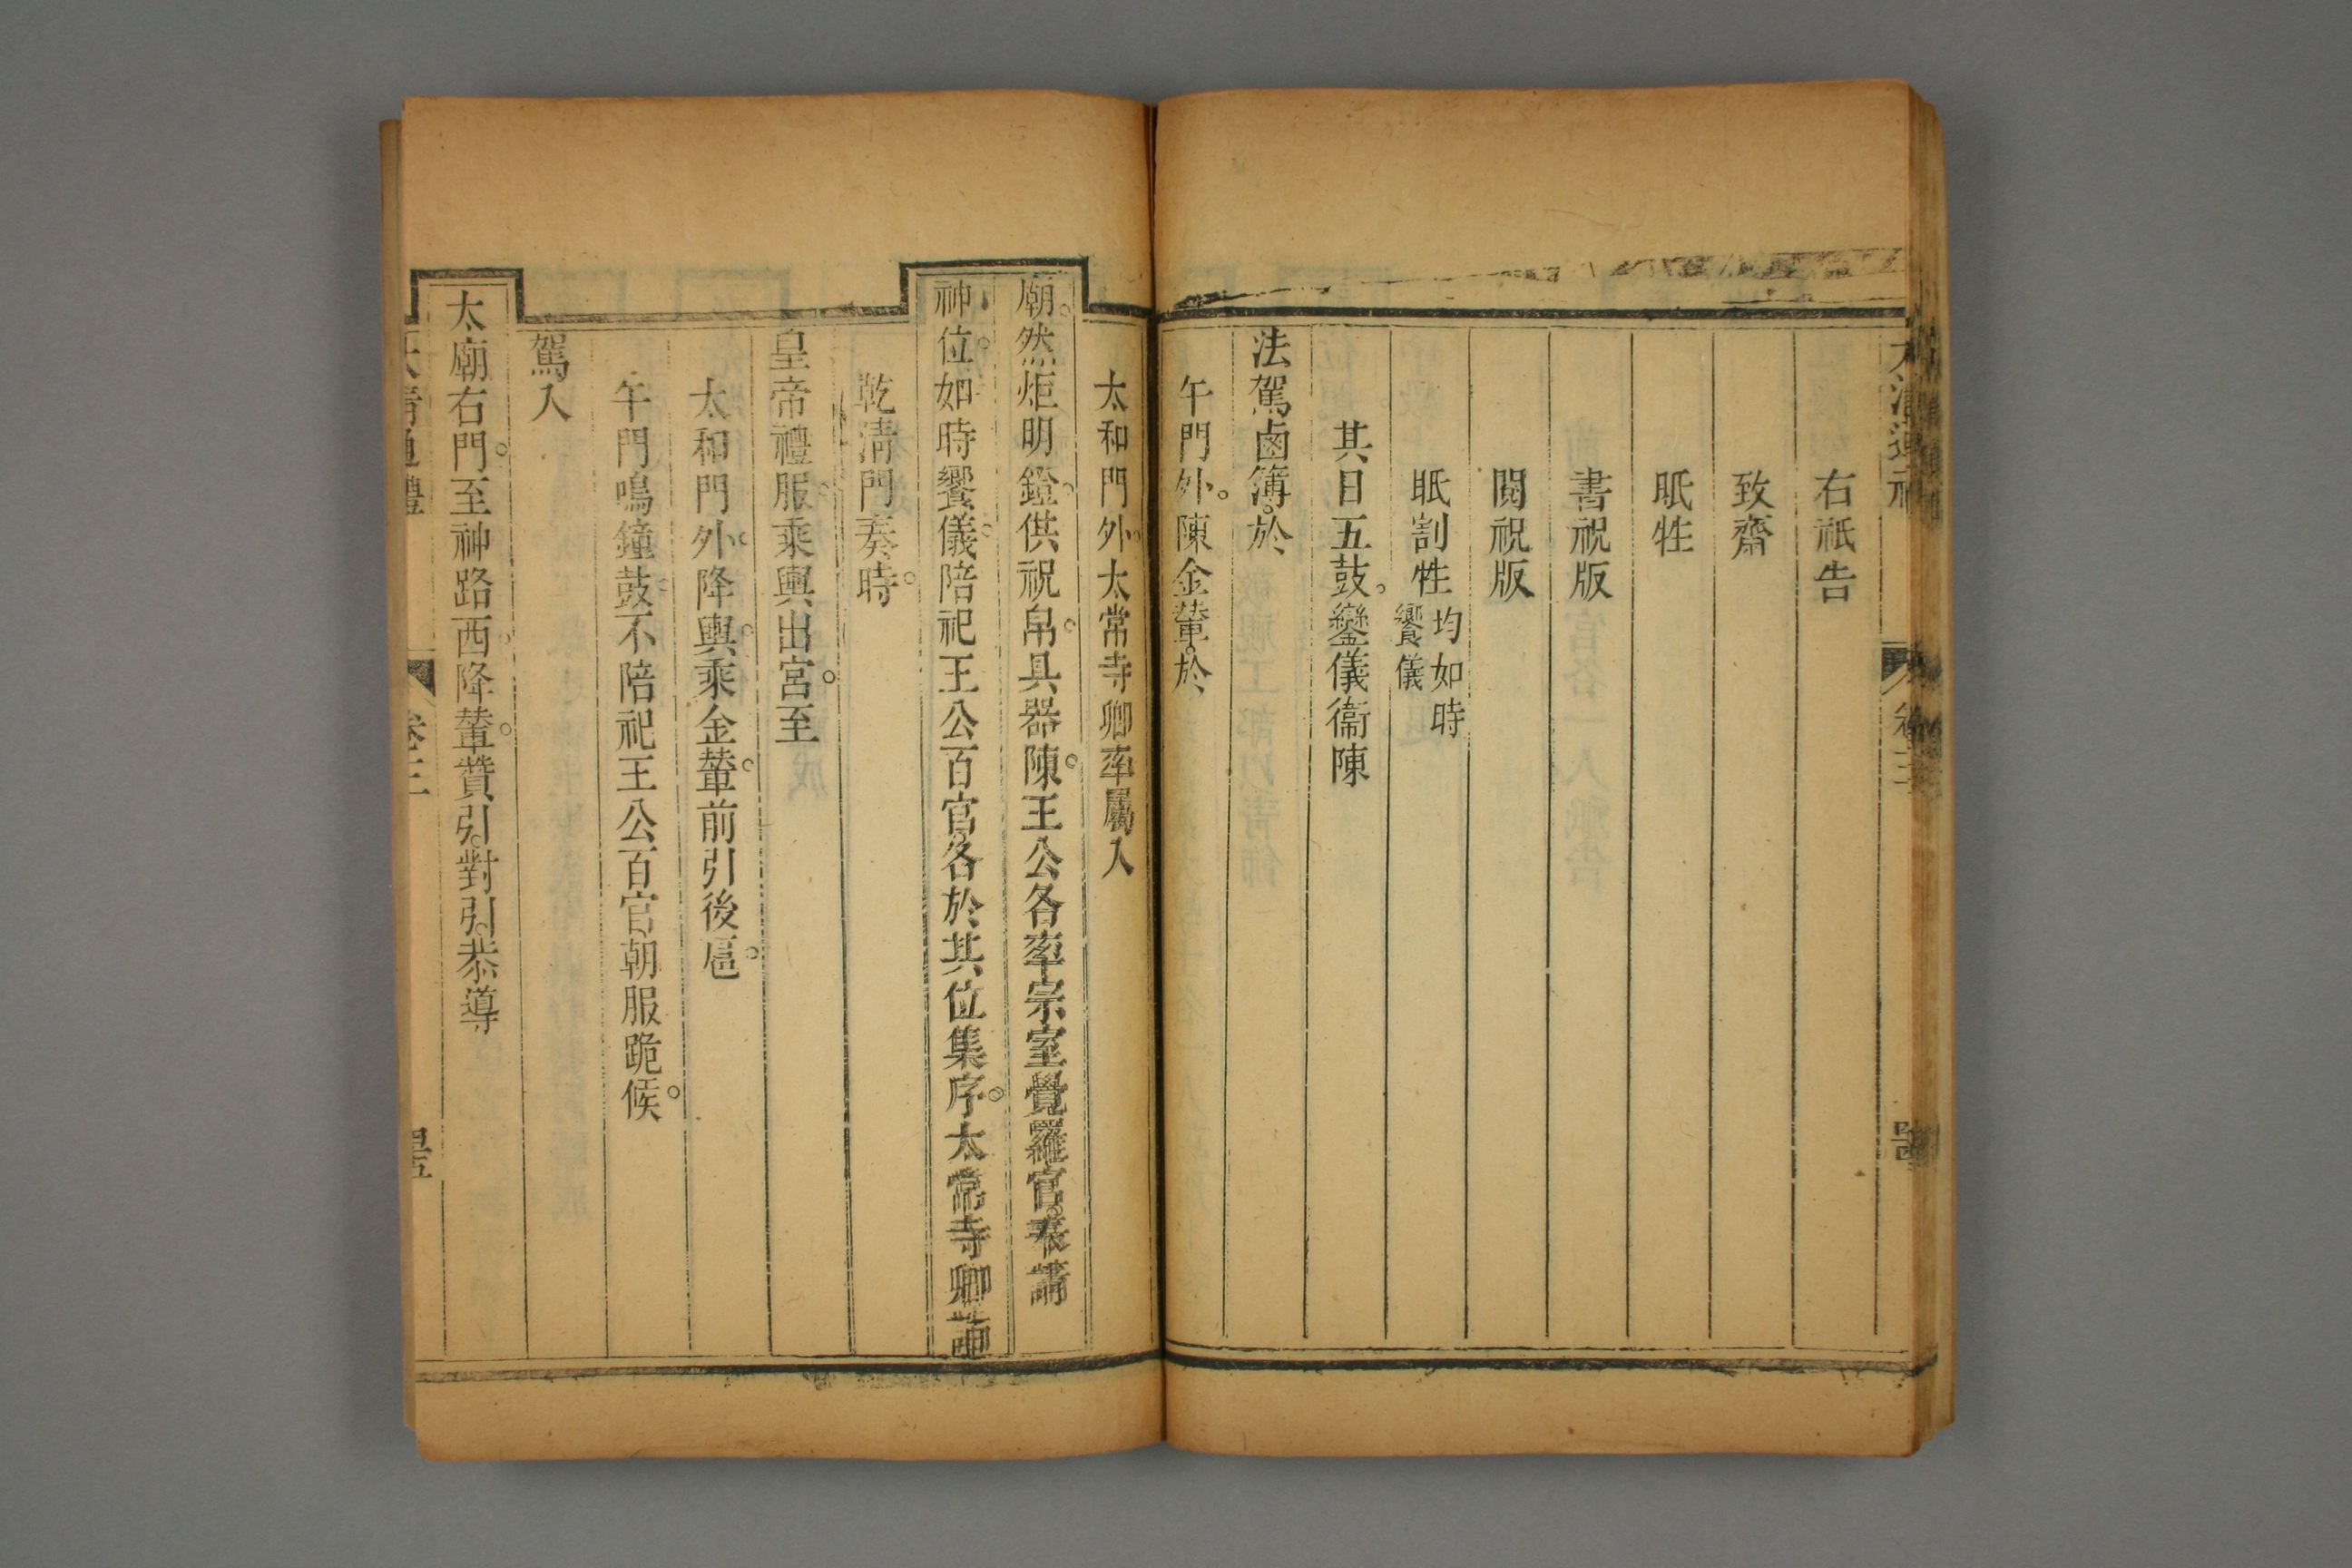 大清通禮 卷三 四四
右祇告
致齋
眂牲
書祝版
閱祝版
眂割牲均如時饗儀
其日五鼓。鑾儀衞陳
法駕鹵簿。於
午門外。陳金輦。於
太和門外。太常寺卿率屬入
廟。然炬明鐙。供祝帛。具器陳。王公各率宗室覺羅官。奉請
神位。如時饗儀。陪祀王公百官。各於其位集序。太常寺卿詣
乾清門奏時。
皇帝禮服。乘輿出宮。至
太和門外。降輿。乘金輦。前引後扈。
午門鳴鐘鼓。不陪祀王公百官。朝服跪候。
駕入
太廟右門。至神路西。降輦。贊引。對引。恭導
大清通禮 卷三 四五